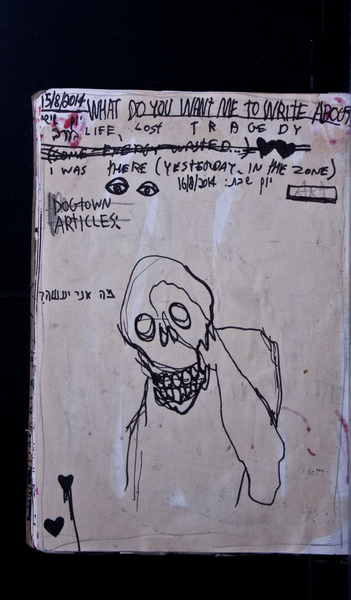 15/8/2014 WHAT DO YOU WANT ME TO WRITE ABOUT
LIFE, LOST TRAGEDY
(SOME ENERGY WASTED...)
I WAS THERE (YESTERDAY, IN THE ZONE)
16/8/2014 יום שבת:
ART
DOGTOWN
ARTICLES:
מה אני יעשה?